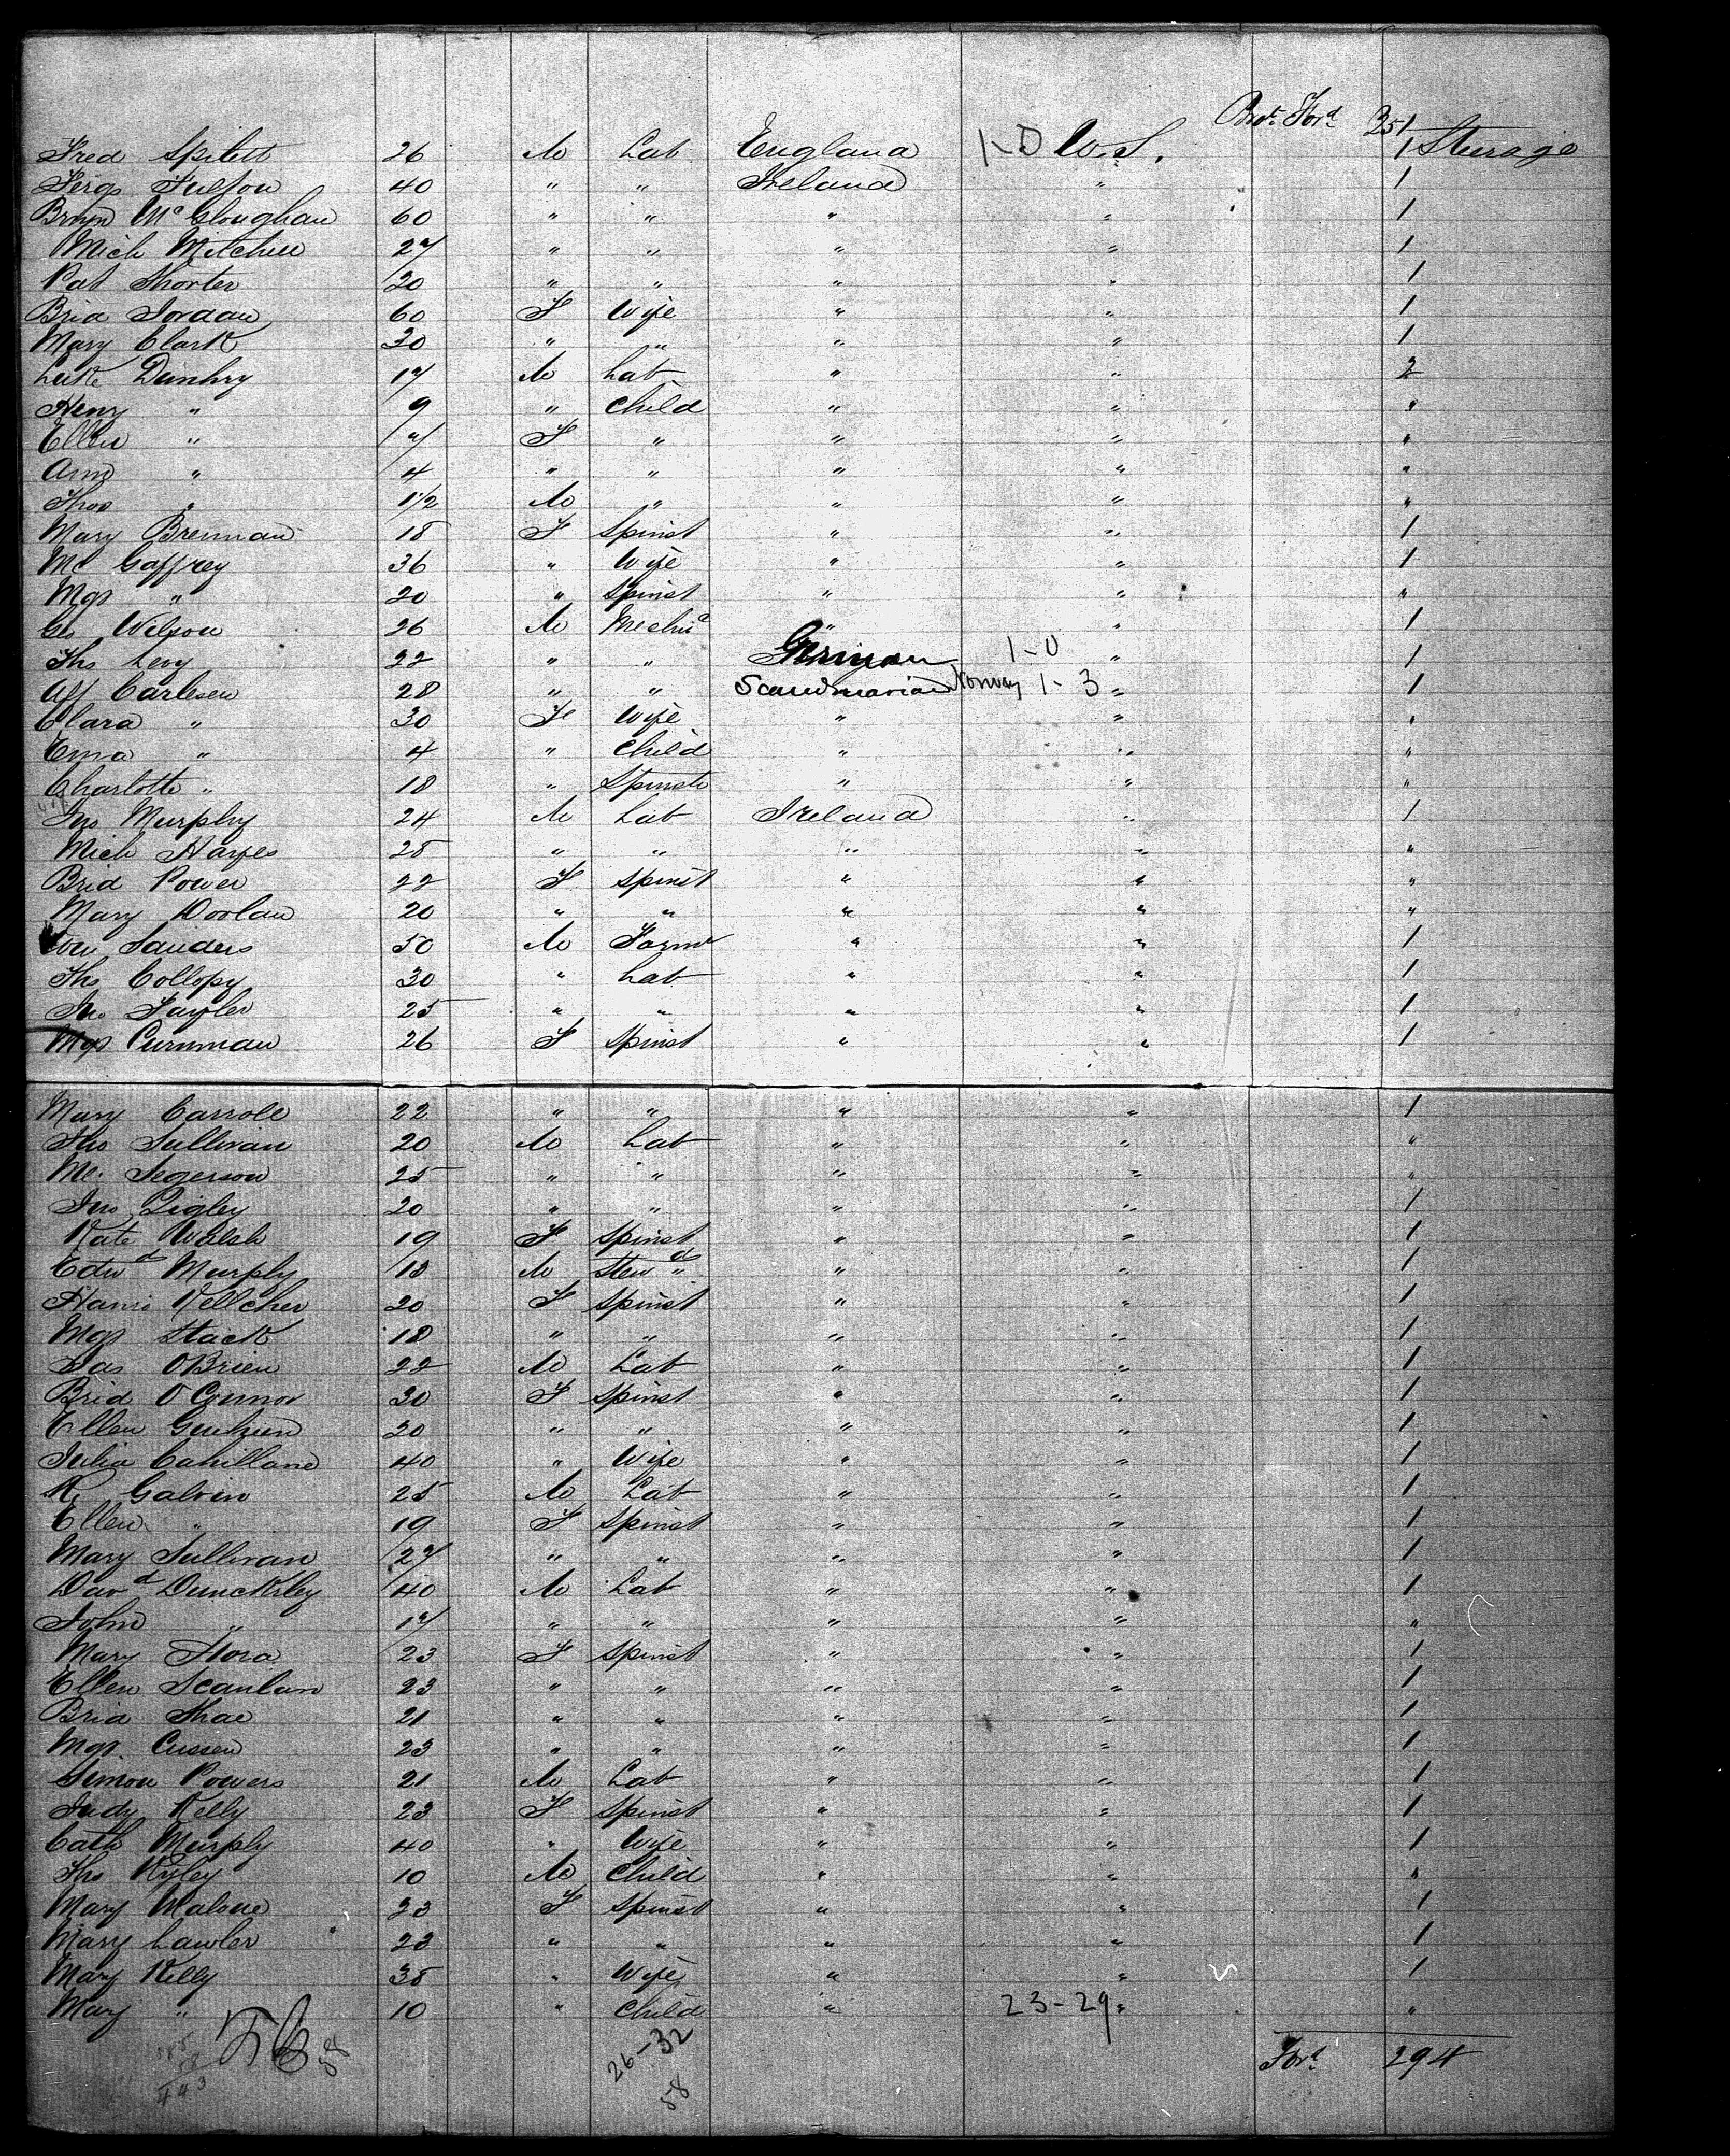 Brot. Ford. 251
Fred Spilett 26 M Lab England 1-0 U.S. 1 Steerage
Fergs Fulton 40 " " Ireland " 1
Bryn McCloughan 60 " " " " 1
Mich Mitchell 27 " " " " 1
Pat Shorter 20 " " " " 1
Brid Jordan 60 F Wife " " 1
Mary Clark 30 " " " " 1
Luke Dunhry 17 M Lab " " 2
Henry " 9 " Child " " "
Ellen " 7 F " " " "
Ann " 4 " " " " "
Thos " 1½ M " " " "
Mary Brennan 18 F Spinst " " 1
M. Gaffrey 36 " Wife " " 1
Mgt " 20 " Spinst " " "
Geo Wilson 26 M Mechn " " 1
Ths Levy 22 " " German 1-0 " 1
Alf Carlesen 28 " " Scandinavian Norway 1-3 " 1
Clara " 30 F Wife " " "
Ema " 4 " Child " " "
Charlotte " 18 " Spinst " " "
Jno Murphy 24 M Lab Ireland " 1
Mich Hayes 25 " " " " "
Brid Power 22 F Spinst " " "
Mary Doolan 20 " " " " "
Sanders 50 M Farmr " " 1
Ths Collopy 30 " Lab " " 1
Jno Taylor 25 " " " " 1
Mgt Curnman 26 F Spinst " " 1
Mary Carroll 22 " " " " 1
Jno Sullivan 20 M Lab " " "
Ml. Segerson 25 " " " " "
Jno Quigley 20 " " " " 1
Kate Walsh 19 F Spinst " " 1
Edwd Murphy 13 M Stewd " " 1
Hanna Kellcher 20 F Spinst " " 1
Mgt Stack 18 " " " " 1
Jas OBrien 22 M Lab " " 1
Brid O Connor 30 F Spinst " " 1
Ellen 20 " " " " 1
Julia Cahillane 40 " Wife " " 1
Galvin 25 M Lab " " 1
Ellen " 19 F Spinst " " 1
Mary Sullivan 27 " " " " 1
Davd Dunckley 40 M Lab " " 1
John " 17 " " " " "
Mary Hora 23 F Spinst " " 1
Ellen Scanlan 23 " " " " 1
Brid Shae 21 " " " " 1
Mgt. Cussen 23 " " " " 1
Simon Powers 21 M Lab " " 1
Judy Kelly 23 F Spinst " " 1
Cath Murphy 40 " Wife " " 1
Ths Kyley 10 M Child " " "
Mary Malone 23 F Spinst " " 1
Mary Lawler 23 " " " " 1
Mary Kelly 35 " Wife " " 1
Mary " 10 " Child " 23-29 " "
58 26-32 Ford 294
443 58